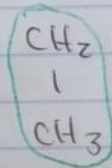 CH2
|
CH3